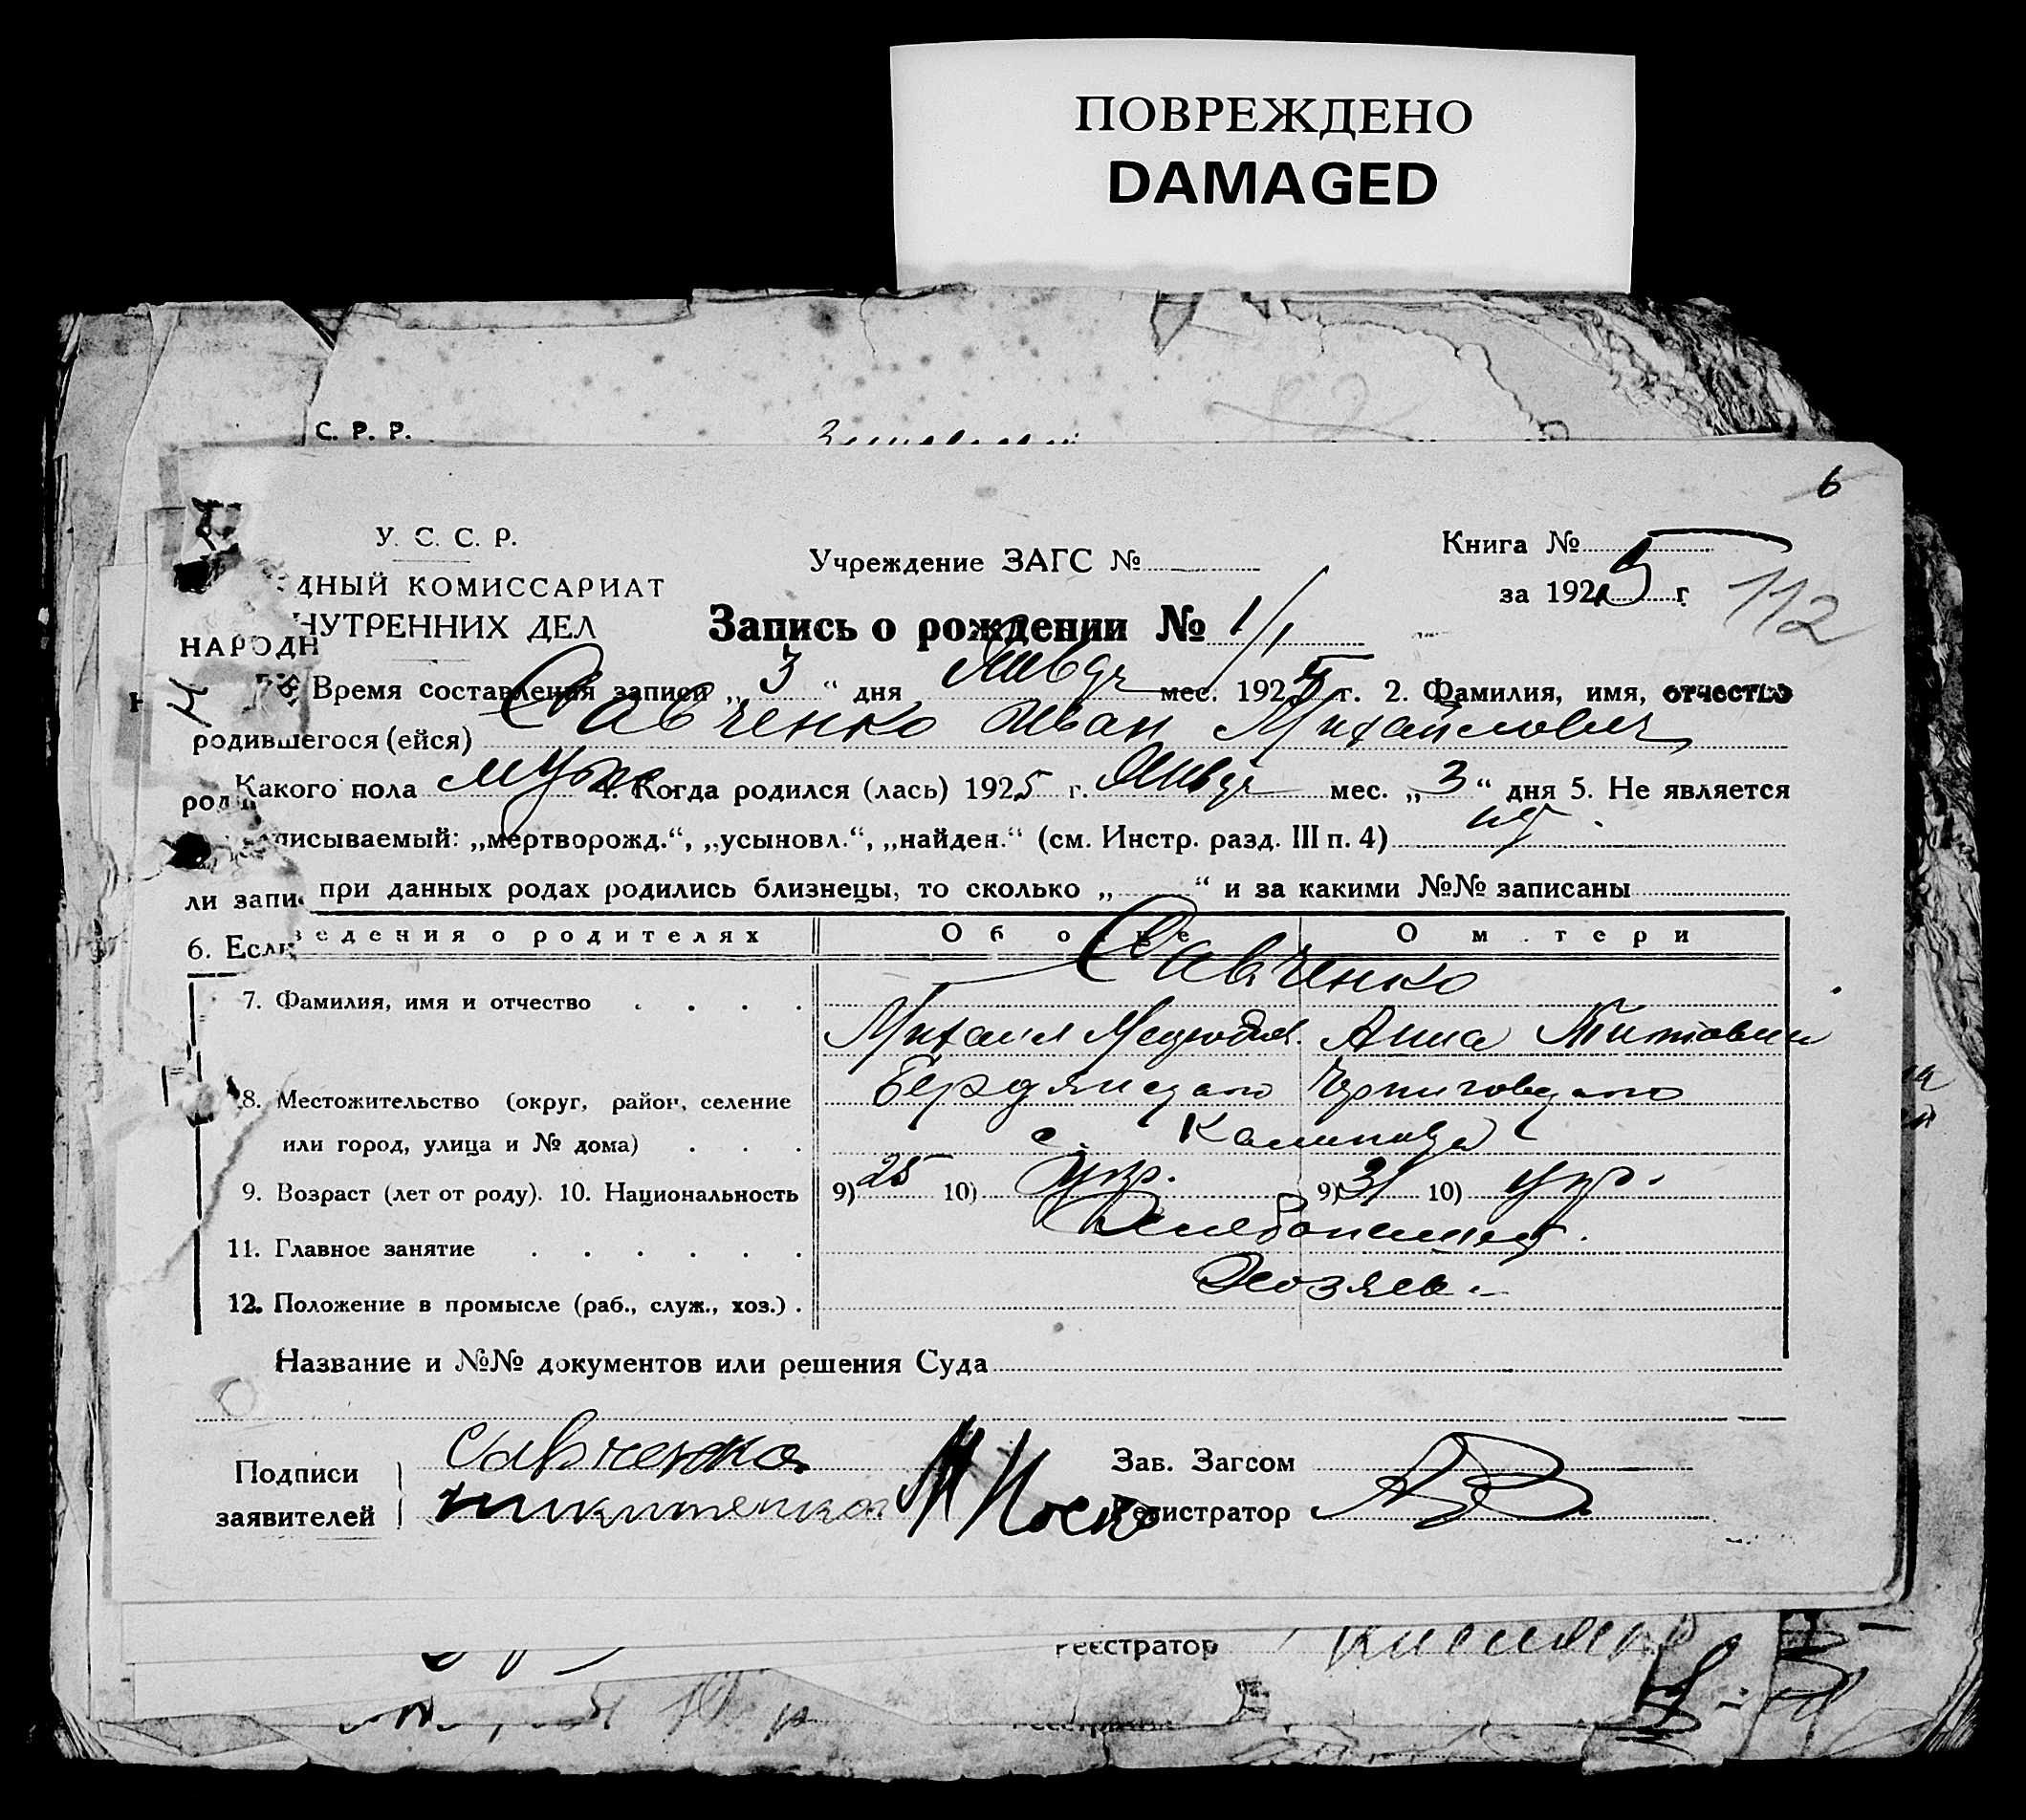 ПОВРЕЖДЕНО
DAMAGED
С. Р. Р.
6
У. С. С. Р.
Учреждение ЗАГС №
Книга №
ДНЫЙ КОМИССАРИАТ
за 1925 г.
112
НУТРЕННИХ ДЕЛ
Запись о рождении № 1/1
НАРОДН
Время составления записи „ 3 “ дня Январ мес. 1925 г. 2. Фамилия, имя, отчество
родившегося (ейся) Савченко Иван Михайлович
Какого пола муж 4. Когда родился (лась) 1925 г. Январ мес. „ 3 “ дня 5. Не является
род
писываемый: „мертворожд.“, „усыновл.“, „найден.“ (см. Инстр. разд. III п. 4) нет.
ли запи при данных родах родились близнецы, то сколько „ “ и за какими №№ записаны
6. Если
ведения о родителях Об отце О матери
7. Фамилия, имя и отчество Савченко
Михаил Анна Титовна
8. Местожительство (округ, район, селение Бердянского Черниговского
или город, улица и № дома) с.
9. Возраст (лет от роду). 10. Национальность 9) 25 10) укр. 9) 31 10) укр.
11. Главное занятие Хлебопашест.
12. Положение в промысле (раб., служ., хоз.) Хозяев
Название и №№ документов или решения Суда
Подписи Савченко Зав. Загсом
заявителей Никитенко Регистратор
Реєстратор